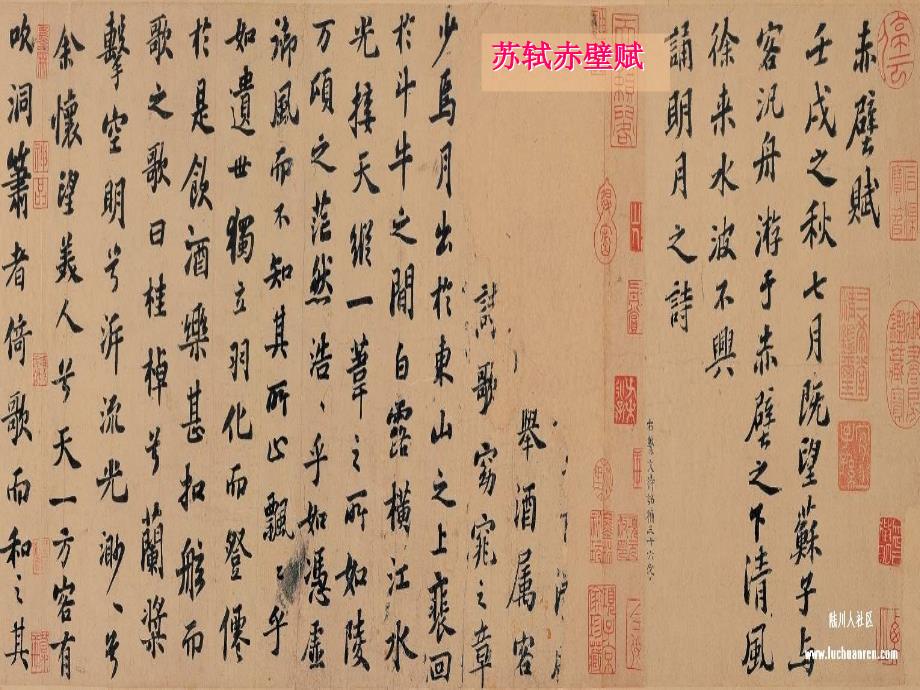 苏轼赤壁赋
赤壁賦
壬戌之秋七月既望蘇子与
客汎舟游于赤壁之下清風
徐来水波不興
誦明月之詩
舉酒属客
詩歌窈窕之章
少焉月出於東山之上裴回
於斗牛之間白露橫江水
光接天縱一葦之所如陵
万頃之茫然浩〻乎如馮虛
御風而不知其所止飄〻乎
如遺世獨立羽化而登僊
於是飲酒樂甚扣舷而
歌之歌曰桂棹兮蘭槳
擊空明兮泝流光渺〻兮
余懷望美人兮天一方客有
吹洞簫者倚歌而和之其
陆川人社区
www.luchuanren.com